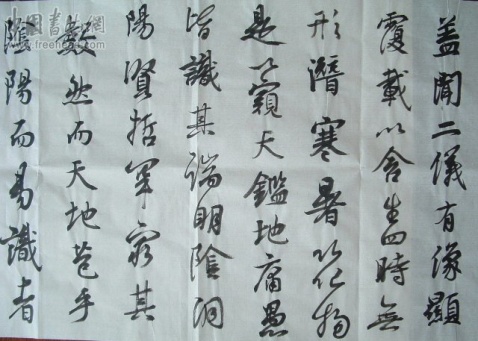 盖聞二儀有像顯
覆載以含生四時無
形潛寒暑以化物
是以窺天鑑地庸愚
皆識其端明陰洞
陽賢哲罕窮其
數然而天地苞乎
陰陽而易識者